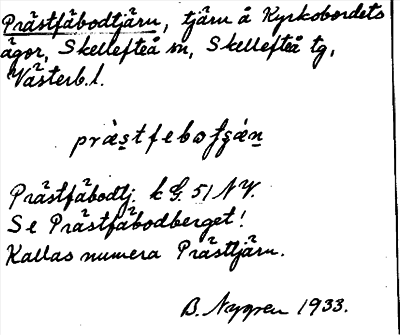 Prästfäbodtjärn, tjärn å Kyrkobordets
ägor, Skellefteå sn, Skellefteå tg,
Västerb. l.
Prästfäbodtj. k G. 51 NV.
Se Prästfäbodberget!
Kallas numera Prästtjärn.
B. Nygren 1933.